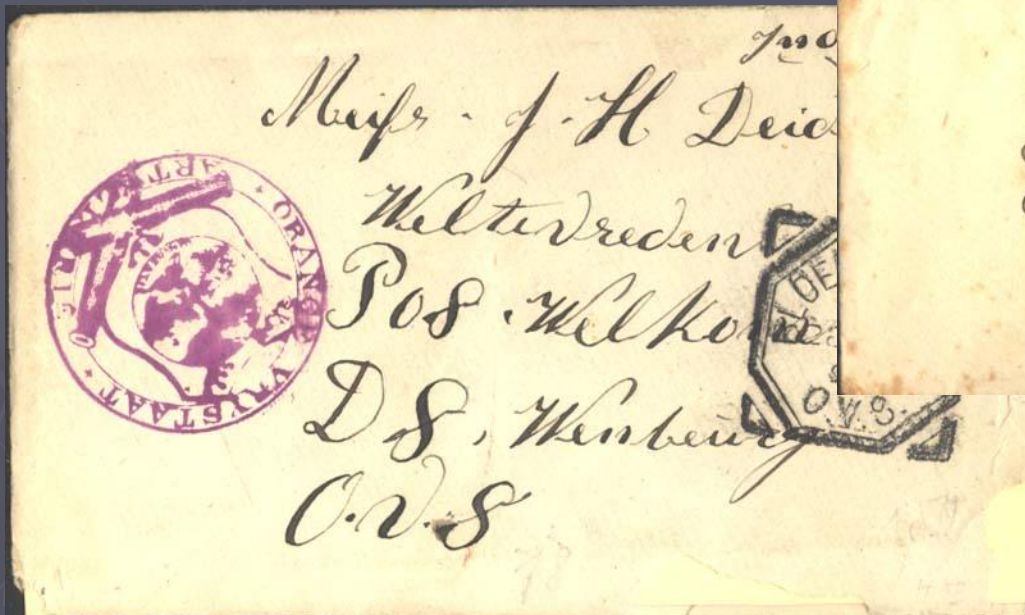 Meifs. J. H Deid
Weltevreden
Pos. Welkom
D S, Wenburg
O.V.S
ORANGE VRYSTAAT ARTILLERIE
O.V.S.